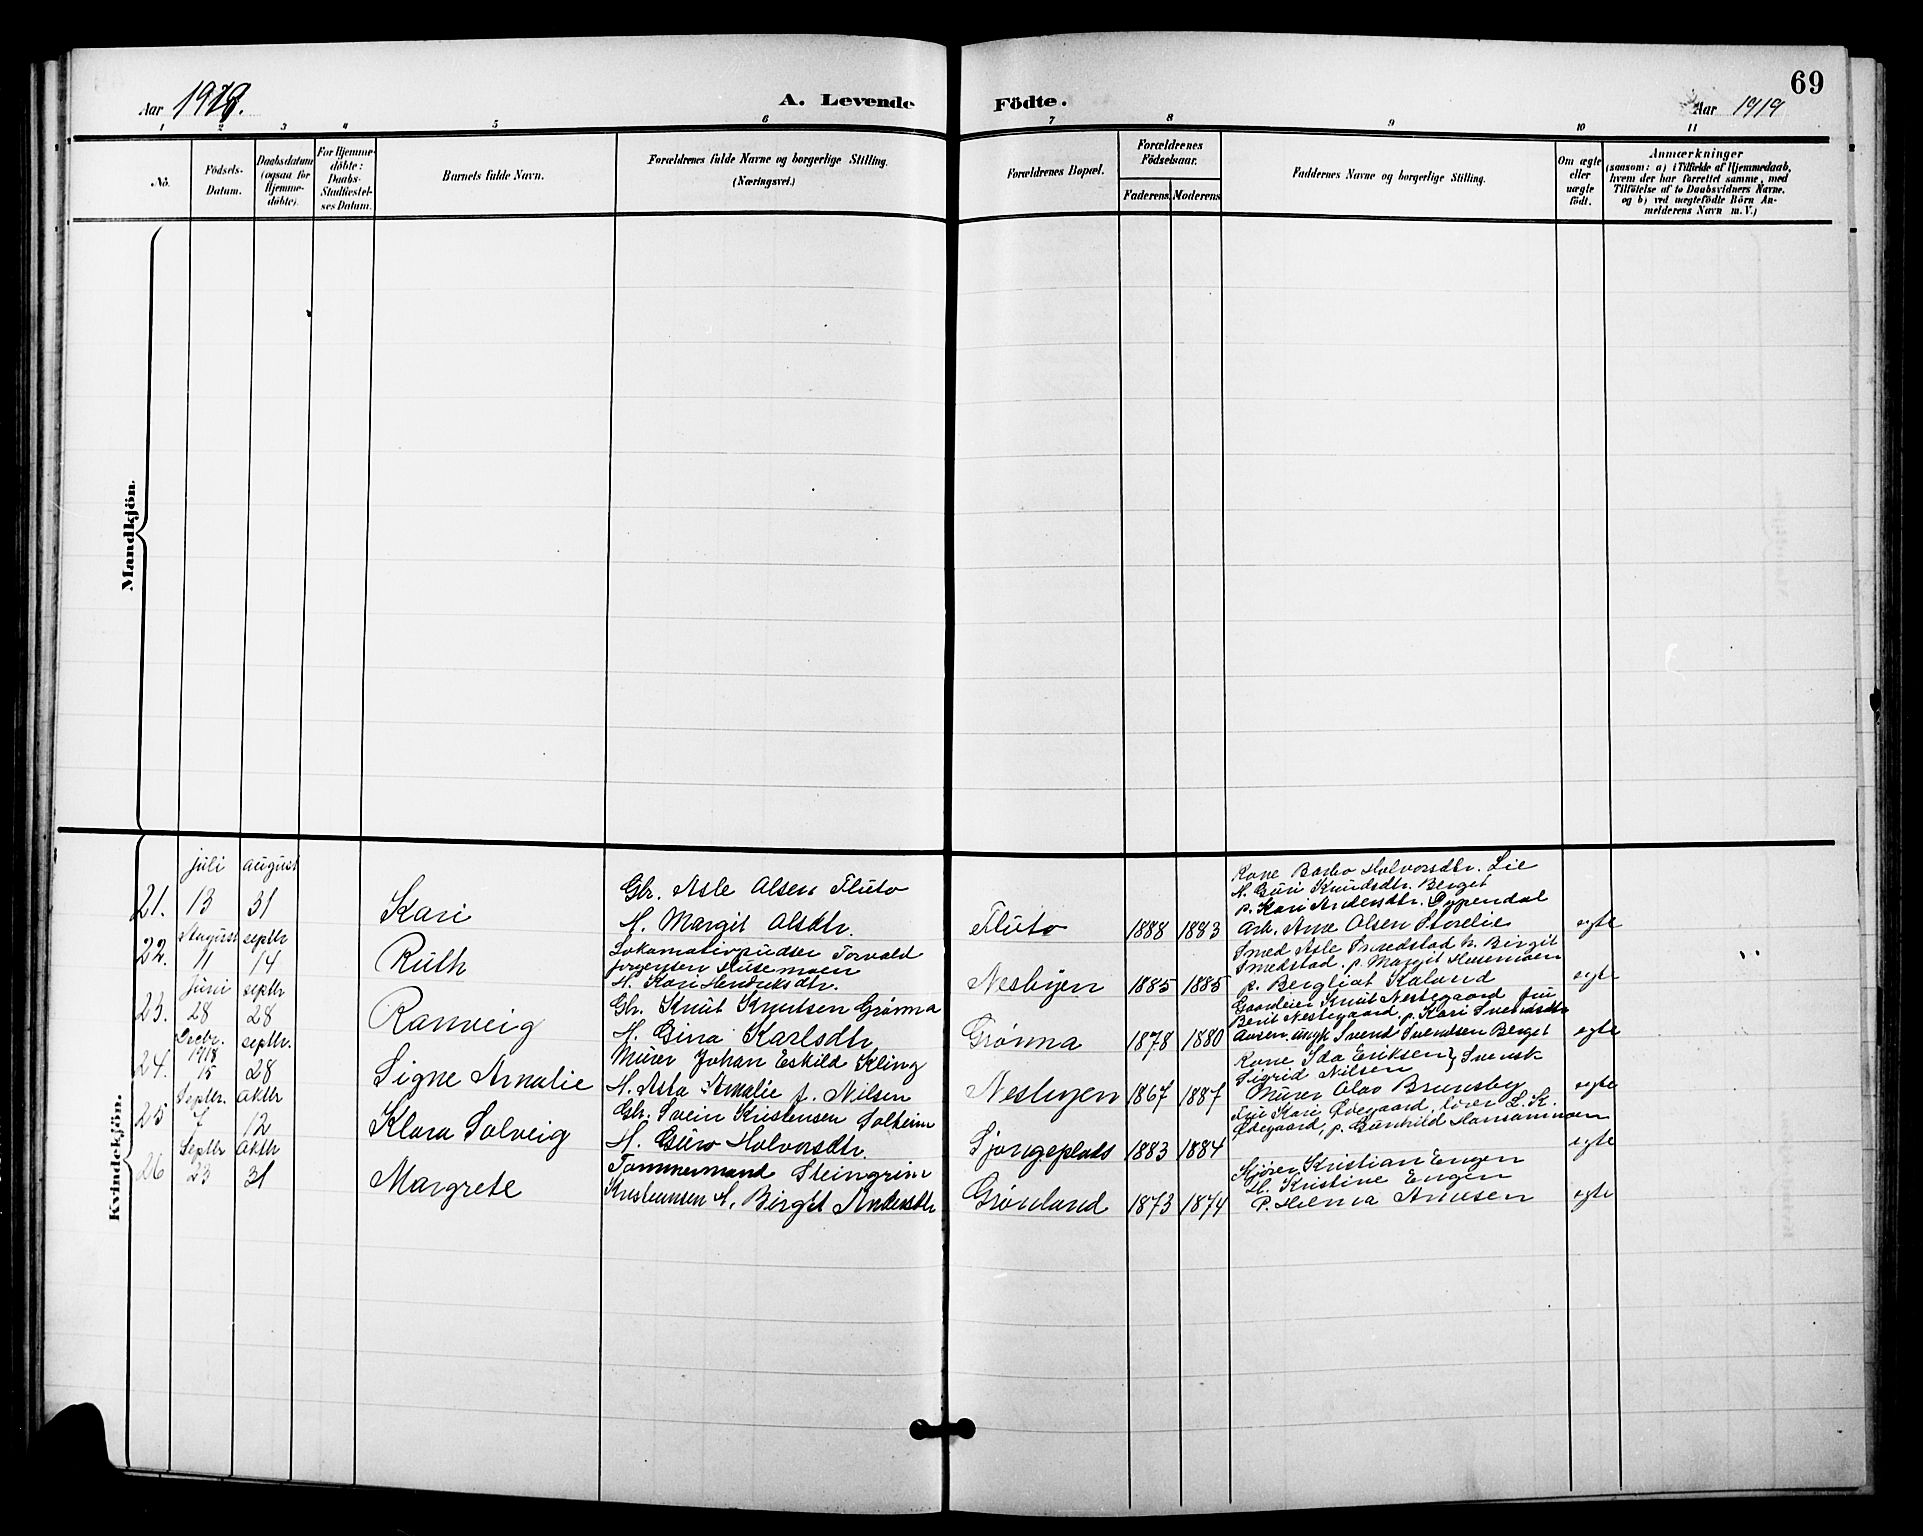 69
Aar 1919.
A. Levende Födte.
Aar 1919
1 2 3 4 5 6 7 8 9 10 11
Nö.
Födsels-
Datum.
Daabsdatum
(ogsaa for
Hjemme-
döbte).
For Hjemme-
döbte:
Daabs-
Stadfæstel-
ses Datum.
Barnets fulde Navn.
Forældrenes fulde Navne og borgerlige Stilling.
(Næringsvei.)
Forældrenes Bopæl.
Forældrenes
Födselsaar.
Faderens. Moderens
Faddernes Navne og borgerlige Stilling.
Om ægte
eller
uægte
födt.
Anmærkninger
(saasom: a) i Tilfælde af Hjemmedaab,
hvem der har forrettet samme, med
Tilföielse af to Daabsvidners Navne.
og b) ved uægtefödte Börn An-
melderens Navn m. V.)
Mandkjön.
Kvindekjön.
21.
juli
13
august
31
Kari
Gbr. Asle Olsen Fluto
H. Margit Olsdtr.
Fluto
1888 1883
Kone Barbo Halvorsdtr. Lie
H. Guri Knudsdtr. Berget
p. Kari Andersdtr. Dypendal
Arb. Arne Olsen Storelie
egte
22.
August
11
septbr
14
Ruth
Lokomotivpudser Torvald
Jørgensen Husemoen
H. Kari Henriksdtr.
Nesbyen
1885 1885
Smed Asle Smedstad h. Birgit
Smedstad. p. Margit Husemoen
p. Bergliot Kaland
egte
23.
Juni
28
septbr
28
Ranveig
Gbr. Knut Knutsen Grønna
H. Gina Karlsdtr
Grønna
1878 1880
Gaardeier Knut Nestegaard fru
Berit Nestegaard, p. Kari Svendsdtr
ungk Svend Svendsen Berget
egte
24.
Decbr.
1918
15
septbr.
28
Signe Amalie
Murer Johan Eskild Kling
H. Asta Amalie f. Nilsen
Nesbyen
1867 1887
Kone Ida Eriksen } Svensk
Sigrid Nilsen
Murer Olav Brunsby
egte
25
Septbr.
7
oktbr
12
Klara Solveig
Gbr. Svein Kristensen Solheim
H. Guro Halvorsdtr.
Sjongeplads
1883 1884
Frue Kari Ødegaard, lærer L. K.
Ødegaard, p. Gunhild Hansommoen
egte
26
Septbr
23
Oktbr
31
Margrete
Tømmermand Steingrim
Kristiansen H. Birgit Andersdtr
Grønland
1873 1874
Kjører Kristian Engen
H. Kristine Engen
P. Helena Arnesen
egte